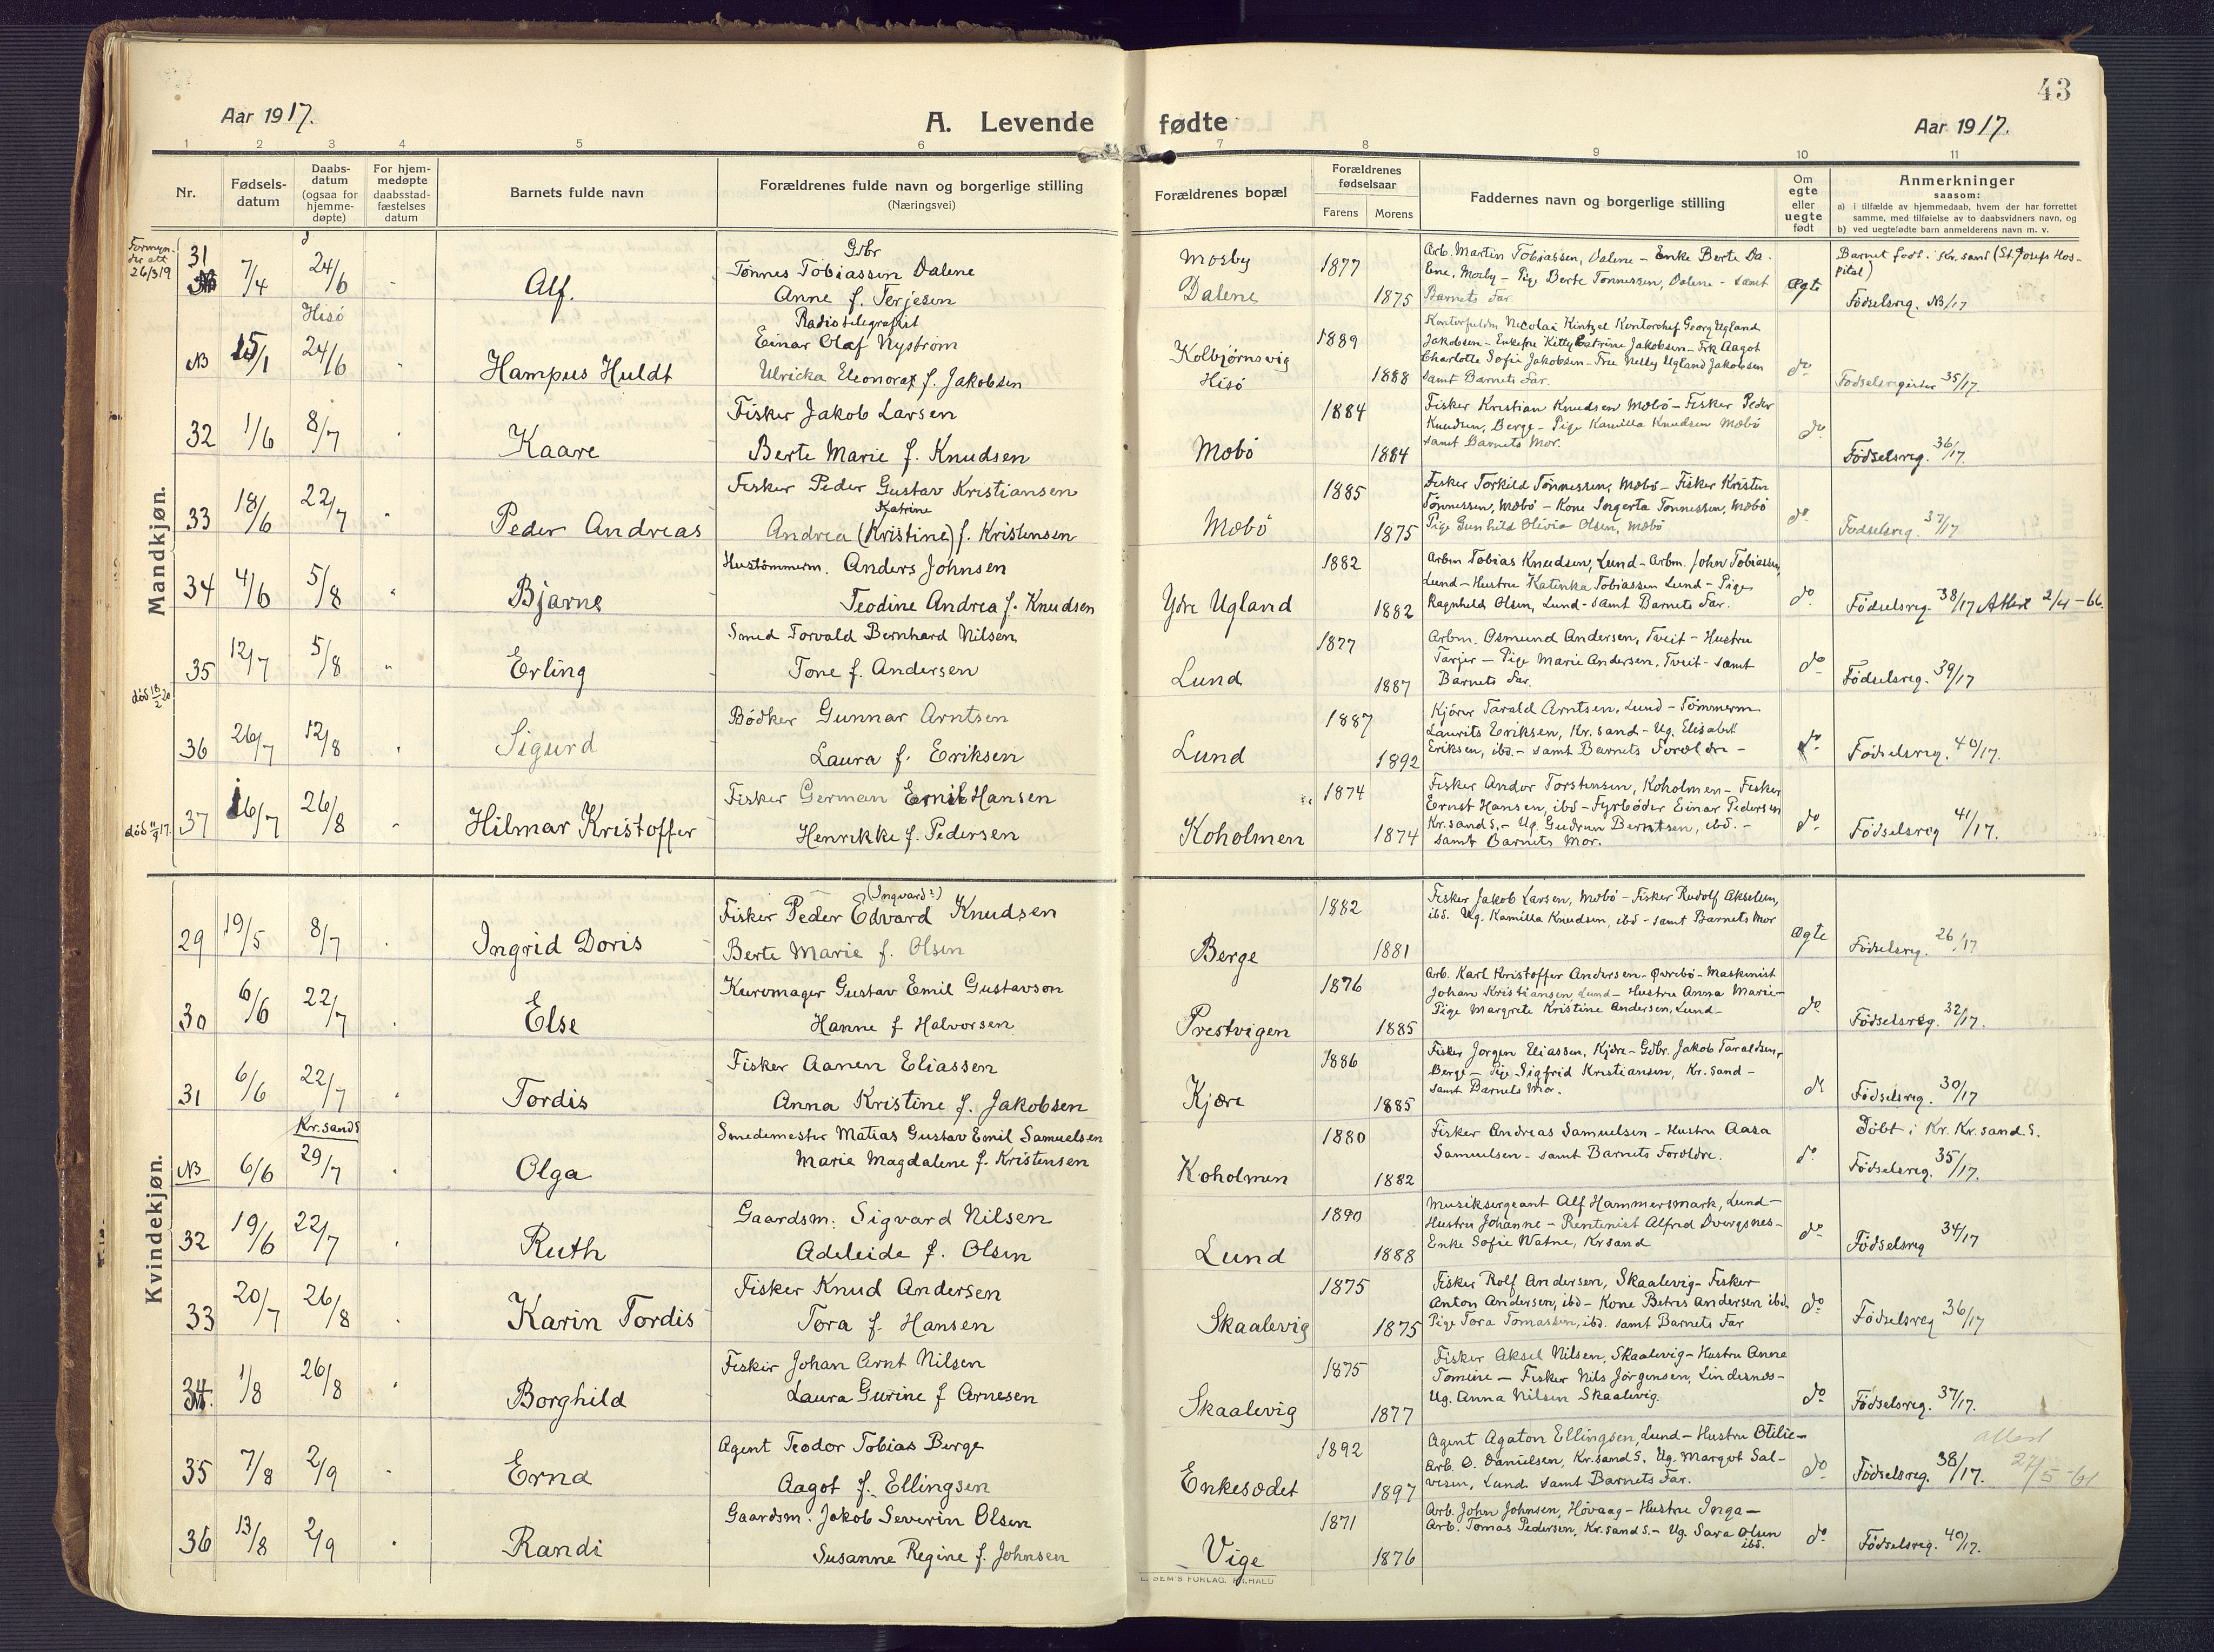 43
Aar 1917.
A. Levende fødte
Aar 1917.
1 2 3 4 5 6 7 8 9 10 11
Nr.
Fødsels-
datum
Daabs-
datum
(ogsaa for
hjemme-
døpte)
For hjem-
medøpte
daabsstad-
fæstelses
datum
Barnets fulde navn
Forældrenes fulde navn og borgerlige stilling
(Næringsvei)
Forældrenes bopæl
Forældrenes
fødselsaar
Farens
Morens
Faddernes navn og borgerlige stilling
Om
egte
eller
uegte
født
Anmerkninger
saasom:
a) i tilfælde av hjemmedaab, hvem der har forrettet
samme, med tilføielse av to daabsvidners navn, og
b) ved uegtefødte barn anmelderens navn m. v.
Mandkjøn.
26/3 19
31 7/4 24/6 Alf.
Gdbr
Tønnes Tobiassen Dalene
Anne f. Terjesen
Mosby
Dalene
1877
1875
Arb. Martin Tobiassen, Dalene - Enke Berte Da-
lene, Mosby - Pige Berte Tønnessen, Dalene - samt
Barnets Far.
Ægte
Barnet født i Kr.sand (St. Josefs Hos-
pital)
Fødselsreg. NB/17
Hisö
NB 15/1 24/6 Hampus Huldt
Radiotelegrafist
Einar Olaf Nyström
Ulricka Eleonora f. Jakobsen
Kolbjørnsvig
Hisö
1889
1888
Nicolai Kintzel Kontorchef Georg Ugland
Jakobsen - Enkefru Kitty Catrine Jakobsen - Frk Aagot
Charlotte Sofie Jakobsen - Frue Nelly Ugland Jakobsen
samt Barnets Far.
do
Fødselsregister 35/17.
32 1/6 8/7 Kaare
Fisker Jakob Larsen
Berte Marie f. Knudsen
Mæbö
1884
1884
Fisker Kristian Knudsen Mæbö - Fisker Peder
Knudsen, Berge - Pige Kamilla Knudsen Mæbö
samt Barnets Mor.
do
Fødselsreg. 36/17.
33 18/6 22/7 Peder Andreas
Fisker Peder Gustav Kristiansen
Katrine
Andrea (Kristine) f. Kristensen
Mæbö
1885
1875
Fisker Torkild Tønnessen, Mæbö - Fisker Kristen
Tønnessen, Mæbö - Kone Ingerta Tønnessen, Mæbö
Pige Gunhild Olivia Olsen, Mæbö
do
Fødselsreg. 37/17
34 4/6 5/8 Bjarne
Hustømmerm. Anders Johnsen
Teodine Andrea f. Knudsen
Ydre Ugland
1882
1882
Arbm Tobias Knudsen, Lund - Arbm. John Tobiassen,
Lund - Hustru Katinka Tobiassen Lund - Pige
Ragnhild Olsen, Lund - samt Barnets Far.
do
Fødselsreg. 38/17 Attest 2/4-66.
35 12/7 5/8 Erling
Smed Torvald Bernhard Nilsen
Tone f. Andersen
Lund
1877
1887
Arbm. Osmund Andersen, Tveit - Hustru
Tarjer - Pige Marie Andersen, Tveit - samt
Barnets Far.
do
Fødselsreg. 39/17
død 18/2 20
36 26/7 12/8 Sigurd
Bödker Gunnar Arntsen
Laura f. Eriksen
Lund
1887
1892
Kjörer Tarald Arntsen, Lund - Tømmerm
Laurits Eriksen, Kr.sand - Ug. Elisabet
Eriksen, ibd. - samt Barnets Forældre -
do
Fødselsreg. 40/17.
død 11/9 17.
37 16/7 26/8 Hilmar Kristoffer
Fisker German Emil Hansen
Henrikke f. Pedersen
Koholmen
1874
1874
Fisker Andor Torstensen, Koholmen - Fisker
Ernst Hansen, ibd - Fyrbøder Einar Pedersen
Kr.sand S. - Ug. Gudrun Berntsen, ibd. -
samt Barnets Mor.
do
Fødselsreg 41/17.
Kvindekjøn.
29 19/5 8/7 Ingrid Doris
(Ingvard?)
Fisker Peder Edvard Knudsen
Berte Marie f. Olsen
Berge
1882
1881
Fisker Jakob Larsen, Mæbö - Fisker Rudolf Akselsen,
ibd. Ug. Kamilla Knudsen, ibd - samt Barnets Mor
Ægte
Fødselsreg. 26/17
30 6/6 22/7 Else
Kurvmager Gustav Emil Gustavson
Hanne f Halvorsen
Prestvigen
1876
1885
Arb. Karl Kristoffer Andersen - Øvrebö - Maskinist
Johan Kristiansen Lund - Hustru Anna Marie -
Pige Margrete Kristine Andersen, Lund -
do
Fødselsreg. 32/17.
31 6/6 22/7 Tordis
Fisker Aanen Eliassen
Anna Kristine f. Jakobsen
Kjære
1886
1885
Fisker Jørgen Eliassen, Kjære - Gdbr. Jakob Taraldsen,
Berge - Pige Sigfrid Kristiansen, Kr.sand -
samt Barnets Mor.
do
Fødselsreg. 30/17
Kr.sand S
NB 6/6 29/7 Olga
Smedemester Matias Gustav Emil Samuelsen
Marie Magdalene f. Kristensen
Koholmen
1880
1882
Fisker Andreas Samuelsen - Hustru Aasa
Samuelsen - samt Barnets Forældre.
do
Döbt i Kr. Kr.sand S.
Fødselsreg. 35/17.
32 19/6 22/7 Ruth
Gaardsm. Sigvard Nilsen
Adeleide f. Olsen
Lund
1890
1888
Musiksergeant Alf Hammersmark, Lund -
Hustru Johanne - Rentenist Alfred Dvergsnes -
Enke Sofie Watne, Krsand
do
Fødselsreg 34/17
33 20/7 26/8 Karin Tordis
Fisker Knud Andersen
Tora f. Hansen
Skaalevig
1875
1875
Fisker Rolf Andersen, Skaalevig - Fisker
Anton Andersen, ibd - Kone Betris Andersen ibd.
Pige Tora Tomassen, ibd. samt Barnets Far
do
Fødselsreg 36/17
34. 1/8 26/8 Borghild
Fisker Johan Arnt Nilsen
Laura Gurine f Arnesen
Skaalevig
1875
1877
Fisker Aksel Nilsen, Skaalevig - Hustru Anne
Tomine - Fisker Nils Jörgensen, Lindesnes -
Ug. Anna Nilsen Skaalevig.
do
Fødselsreg. 37/17.
35 7/8 2/9 Erna
Agent Teodor Tobias Berge
Aagot f. Ellingsen
Enkesædet
1892
1897
Agent Agaton Ellingsen, Lund - Hustru Otilie -
Arb. O. Danielsen, Kr.sand S. Ug. Margot Sal-
vesen, Lund samt Barnets Far.
do
Fødselsreg. 38/17.
attest
27/5-61
36 13/8 2/9 Randi
Gaardsm. Jakob Severin Olsen
Susanne Regine f. Johnsen
Vige
1871
1876
Arb. John Johnsen, Hövaag - Hustru Inga -
Arb. Tomas Pedersen, Kr.sand S. - Ug. Sara Olsen
ibd.
do
Fødselsreg. 40/17.